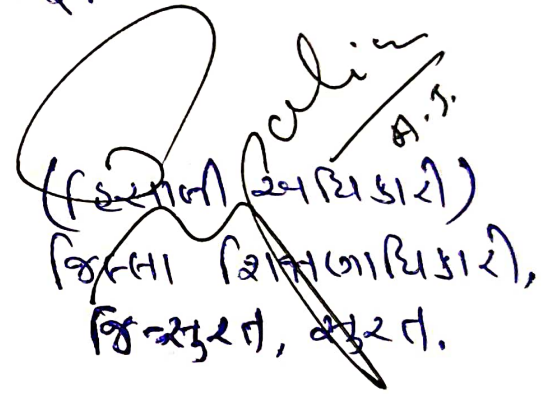 (હિસાબી અધિકારી)
જિલ્લા શિક્ષણાધિકારી,
જિ-સુરત, સુરત.